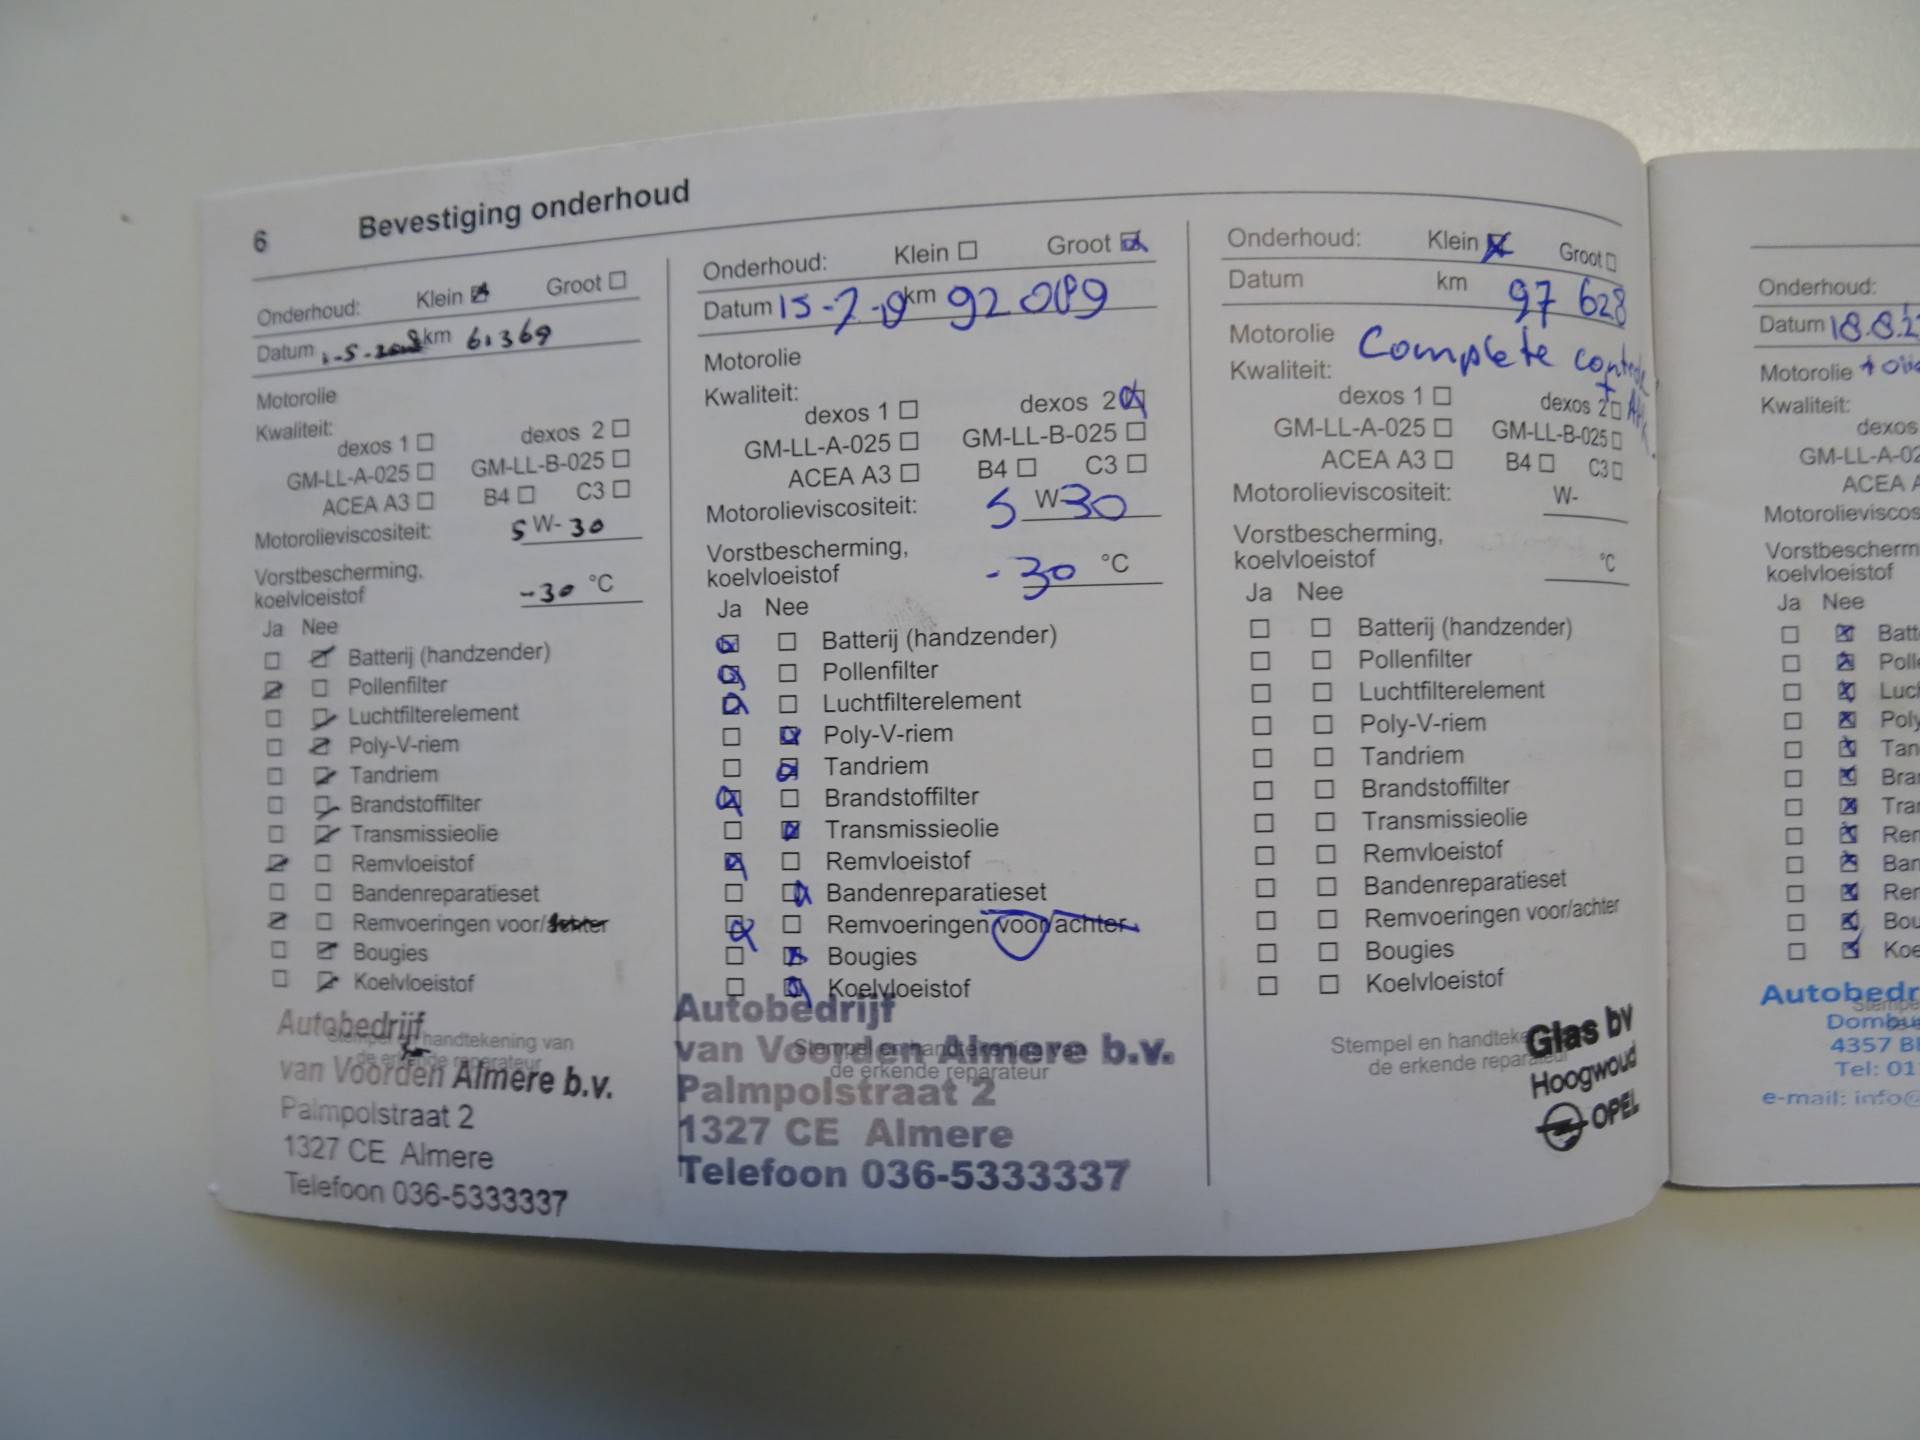 6 Bevestiging onderhoud
Onderhoud: Klein Groot
Datum km 61369
Motorolie
Kwaliteit:
dexos 1 dexos 2
GM-LL-A-025 GM-LL-B-025
ACEA A3 B4 C3
Motorolieviscositeit: 5 W-30
Vorstbescherming,
koelvloeistof -30 °C
Ja Nee
Batterij (handzender)
Pollenfilter
Luchtfilterelement
Poly-V-riem
Tandriem
Brandstoffilter
Transmissieolie
Remvloeistof
Bandenreparatieset
Remvoeringen voor/achter
Bougies
Koelvloeistof
Stempel en handtekening van
de erkende reparateur
Autobedrijf
van Voorden Almere b.v.
Palmpolstraat 2
1327 CE Almere
Telefoon 036-5333337
Onderhoud: Klein Groot
Datum 15-7-19 km 92089
Motorolie
Kwaliteit:
dexos 1 dexos 2
GM-LL-A-025 GM-LL-B-025
ACEA A3 B4 C3
Motorolieviscositeit: 5 W-30
Vorstbescherming,
koelvloeistof -30 °C
Ja Nee
Batterij (handzender)
Pollenfilter
Luchtfilterelement
Poly-V-riem
Tandriem
Brandstoffilter
Transmissieolie
Remvloeistof
Bandenreparatieset
Remvoeringen voor/achter
Bougies
Koelvloeistof
Stempel en handtekening van
de erkende reparateur
Autobedrijf
van Voorden Almere b.v.
Palmpolstraat 2
1327 CE Almere
Telefoon 036-5333337
Onderhoud: Klein Groot
Datum km 97 628
Motorolie Complete controle
+ APK.
Kwaliteit:
dexos 1 dexos 2
GM-LL-A-025 GM-LL-B-025
ACEA A3 B4 C3
Motorolieviscositeit: W-
Vorstbescherming,
koelvloeistof °C
Ja Nee
Batterij (handzender)
Pollenfilter
Luchtfilterelement
Poly-V-riem
Tandriem
Brandstoffilter
Transmissieolie
Remvloeistof
Bandenreparatieset
Remvoeringen voor/achter
Bougies
Koelvloeistof
Stempel en handteke
de erkende reparateur
Glas bv
Hoogwoud
OPEL
Onderhoud:
Datum 18.8.2
Motorolie
Kwaliteit:
dexos
GM-LL-A-02
ACEA A
Motorolieviscos
Vorstbescherm
koelvloeistof
Ja Nee
Batt
Poll
Luch
Poly
Tan
Bra
Tra
Rem
Ban
Rem
Bou
Koe
Autobedr
Dombu
4357 B
Tel: 01
e-mail: info@